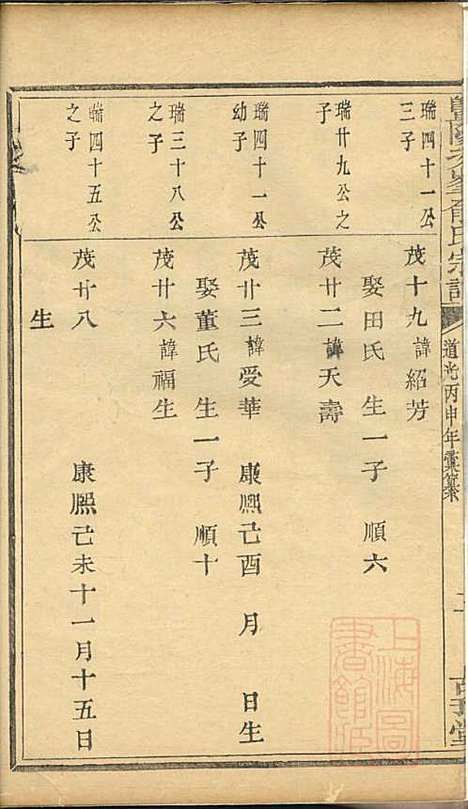 道光丙申年彙纂
瑞四十一公
三子
茂十九諱紹芳
娶田氏 生一子 順六
瑞廿九公之
子
茂廿二諱天壽
瑞四十一公
幼子
茂廿三諱愛華 康熙己酉 月 日生
娶董氏 生一子 順十
瑞三十八公
之子
茂廿六諱福生
瑞四十五公
之子
茂廿八 康熙己未十一月十五日
生
上海圖
書館藏